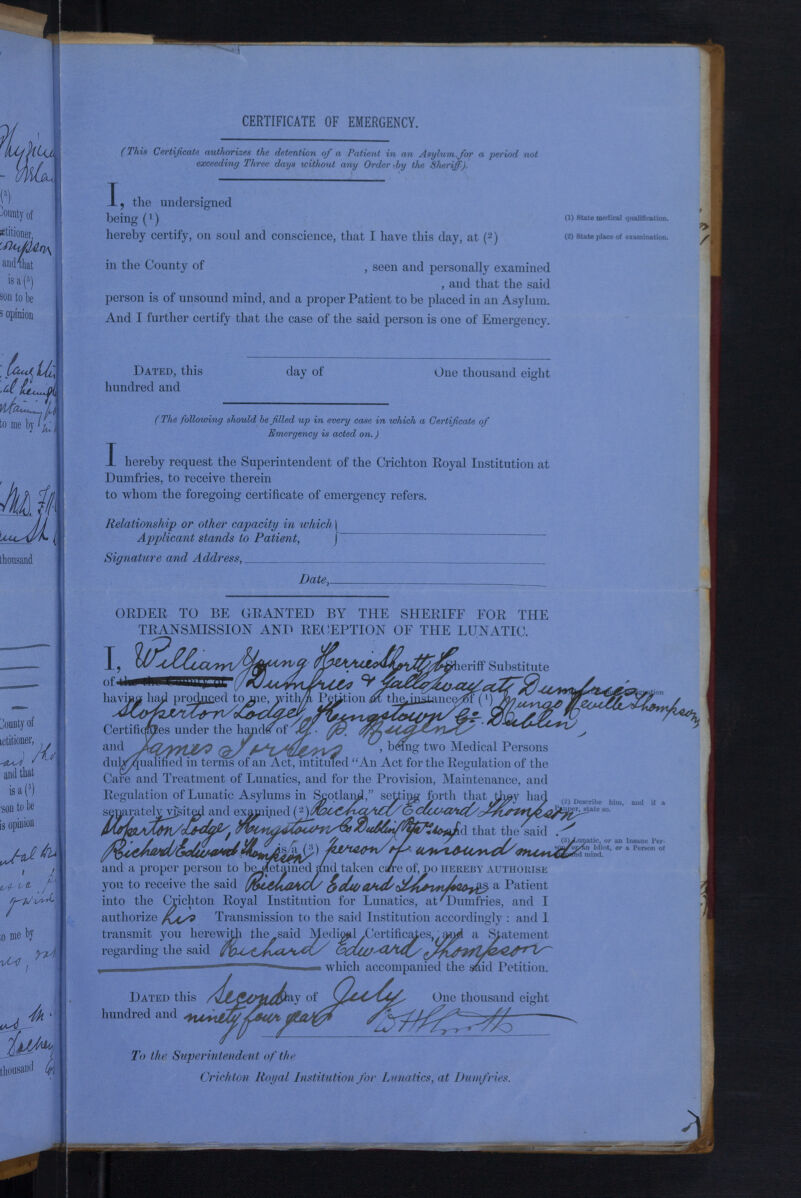 CERTIFICATE OF EMERGENCY.
(This Certificate authorizes the detention of a Patient in an Asylum, for a period not
exceeding Three days without any Order by the Sheriff).
I, the undersigned
being (1)
(1) State medical qualification.
hereby certify, on soul and conscience, that I have this day, at (2)
(2) State place of examination.
in the County of , seen and personally examined
, and that the said
person is of unsound mind, and a proper Patient to be placed in an Asylum.
And I further certify that the case of the said person is one of Emergency.
DATED, this day of One thousand eight
hundred and
(The following should be filled up in every case in which a Certificate of
Emergency is acted on.)
I hereby request the Superintendent of the Crichton Royal Institution at
Dumfries, to receive therein
to whom the foregoing certificate of emergency refers.
Relationship or other capacity in which
Applicant stands to Patient,
Signature and Address,
Date,
ORDER TO BE GRANTED BY THE SHERIFF FOR THE
TRANSMISSION AND RECEPTION OF THE LUNATIC.
I, William Young Herries Shortt, Sheriff Substitute
of Dumfries & Galloway at Dumfries
having had produced to me, with a Petition at the instance of (1) Mungo Neville Thompson,
Sloperton Lodge, Kingstown Co. Dublin,
Certificates under the hands of
and James , being two Medical Persons
duly qualified in terms of an Act, intituled "An Act for the Regulation of the
Care and Treatment of Lunatics, and for the Provision, Maintenance, and
Regulation of Lunatic Asylums in Scotland," setting forth that they had
separately visited and examined (2) Richard Edward Thompson,
(2) Describe him, and if a
Pauper, state so.
Sloperton Lodge, Kingstown Co Dublin and that the said
Richard Edward Thompson is a (3) person of unsound mind
(3) Lunatic, or an Insane Per-
son, or an Idiot, or a Person of
unsound mind.
and a proper person to be detained and taken care of, DO HEREBY AUTHORISE
you to receive the said Richard Edward Thompson as a Patient
into the Crichton Royal Institution for Lunatics, at Dumfries, and I
authorize his Transmission to the said Institution accordingly : and I
transmit you herewith the said Medical Certificates, and a Statement
regarding the said Richard Edward Thompson
which accompanied the said Petition.
DATED this Second day of July One thousand eight
hundred and ninety four years
To the Superintendent of the
Crichton Royal Institution for Lunatics, at Dumfries.